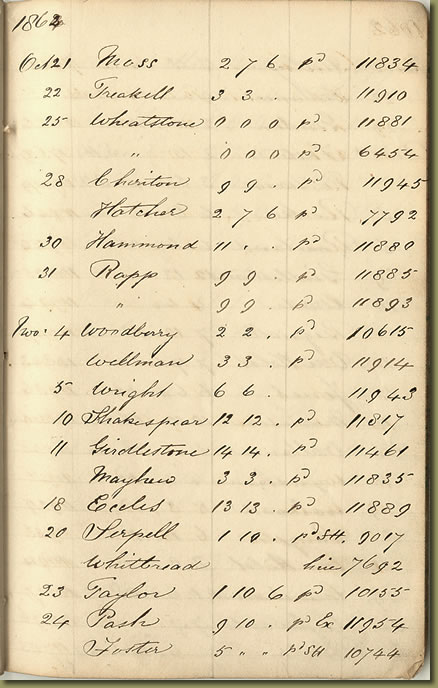 1862
Oct 21 Moss 2 7 6 pd 11834
22 Treakell 3 3 . 11910
25 Wheatstone 0 0 0 pd 11881
" 0 0 0 pd 6454
28 Cheriton 9 9 . pd 11945
Hatcher 2 7 6 pd 7792
30 Hammond 11 . . pd 11880
31 Rapp 9 9 . pd 11885
" 9 9 . pd 11893
Nov: 4 Woodberry 2 2 . pd 10615
Wellman 3 3 . pd 11914
5 Wright 6 6 . 11943
10 Shakespear 12 12 . pd 11817
11 Girdlestone 14 14 . pd 11461
Mayhew 3 3 . pd 11835
18 Eccles 13 13 . pd 11889
20 Serpell 1 10 . pd SH. 9017
Whitbread hire 7692
23 Taylor 1 10 6 pd 10155
24 Pash 9 10 . pd Ex 11954
Foster 5 " " pd SH 10744